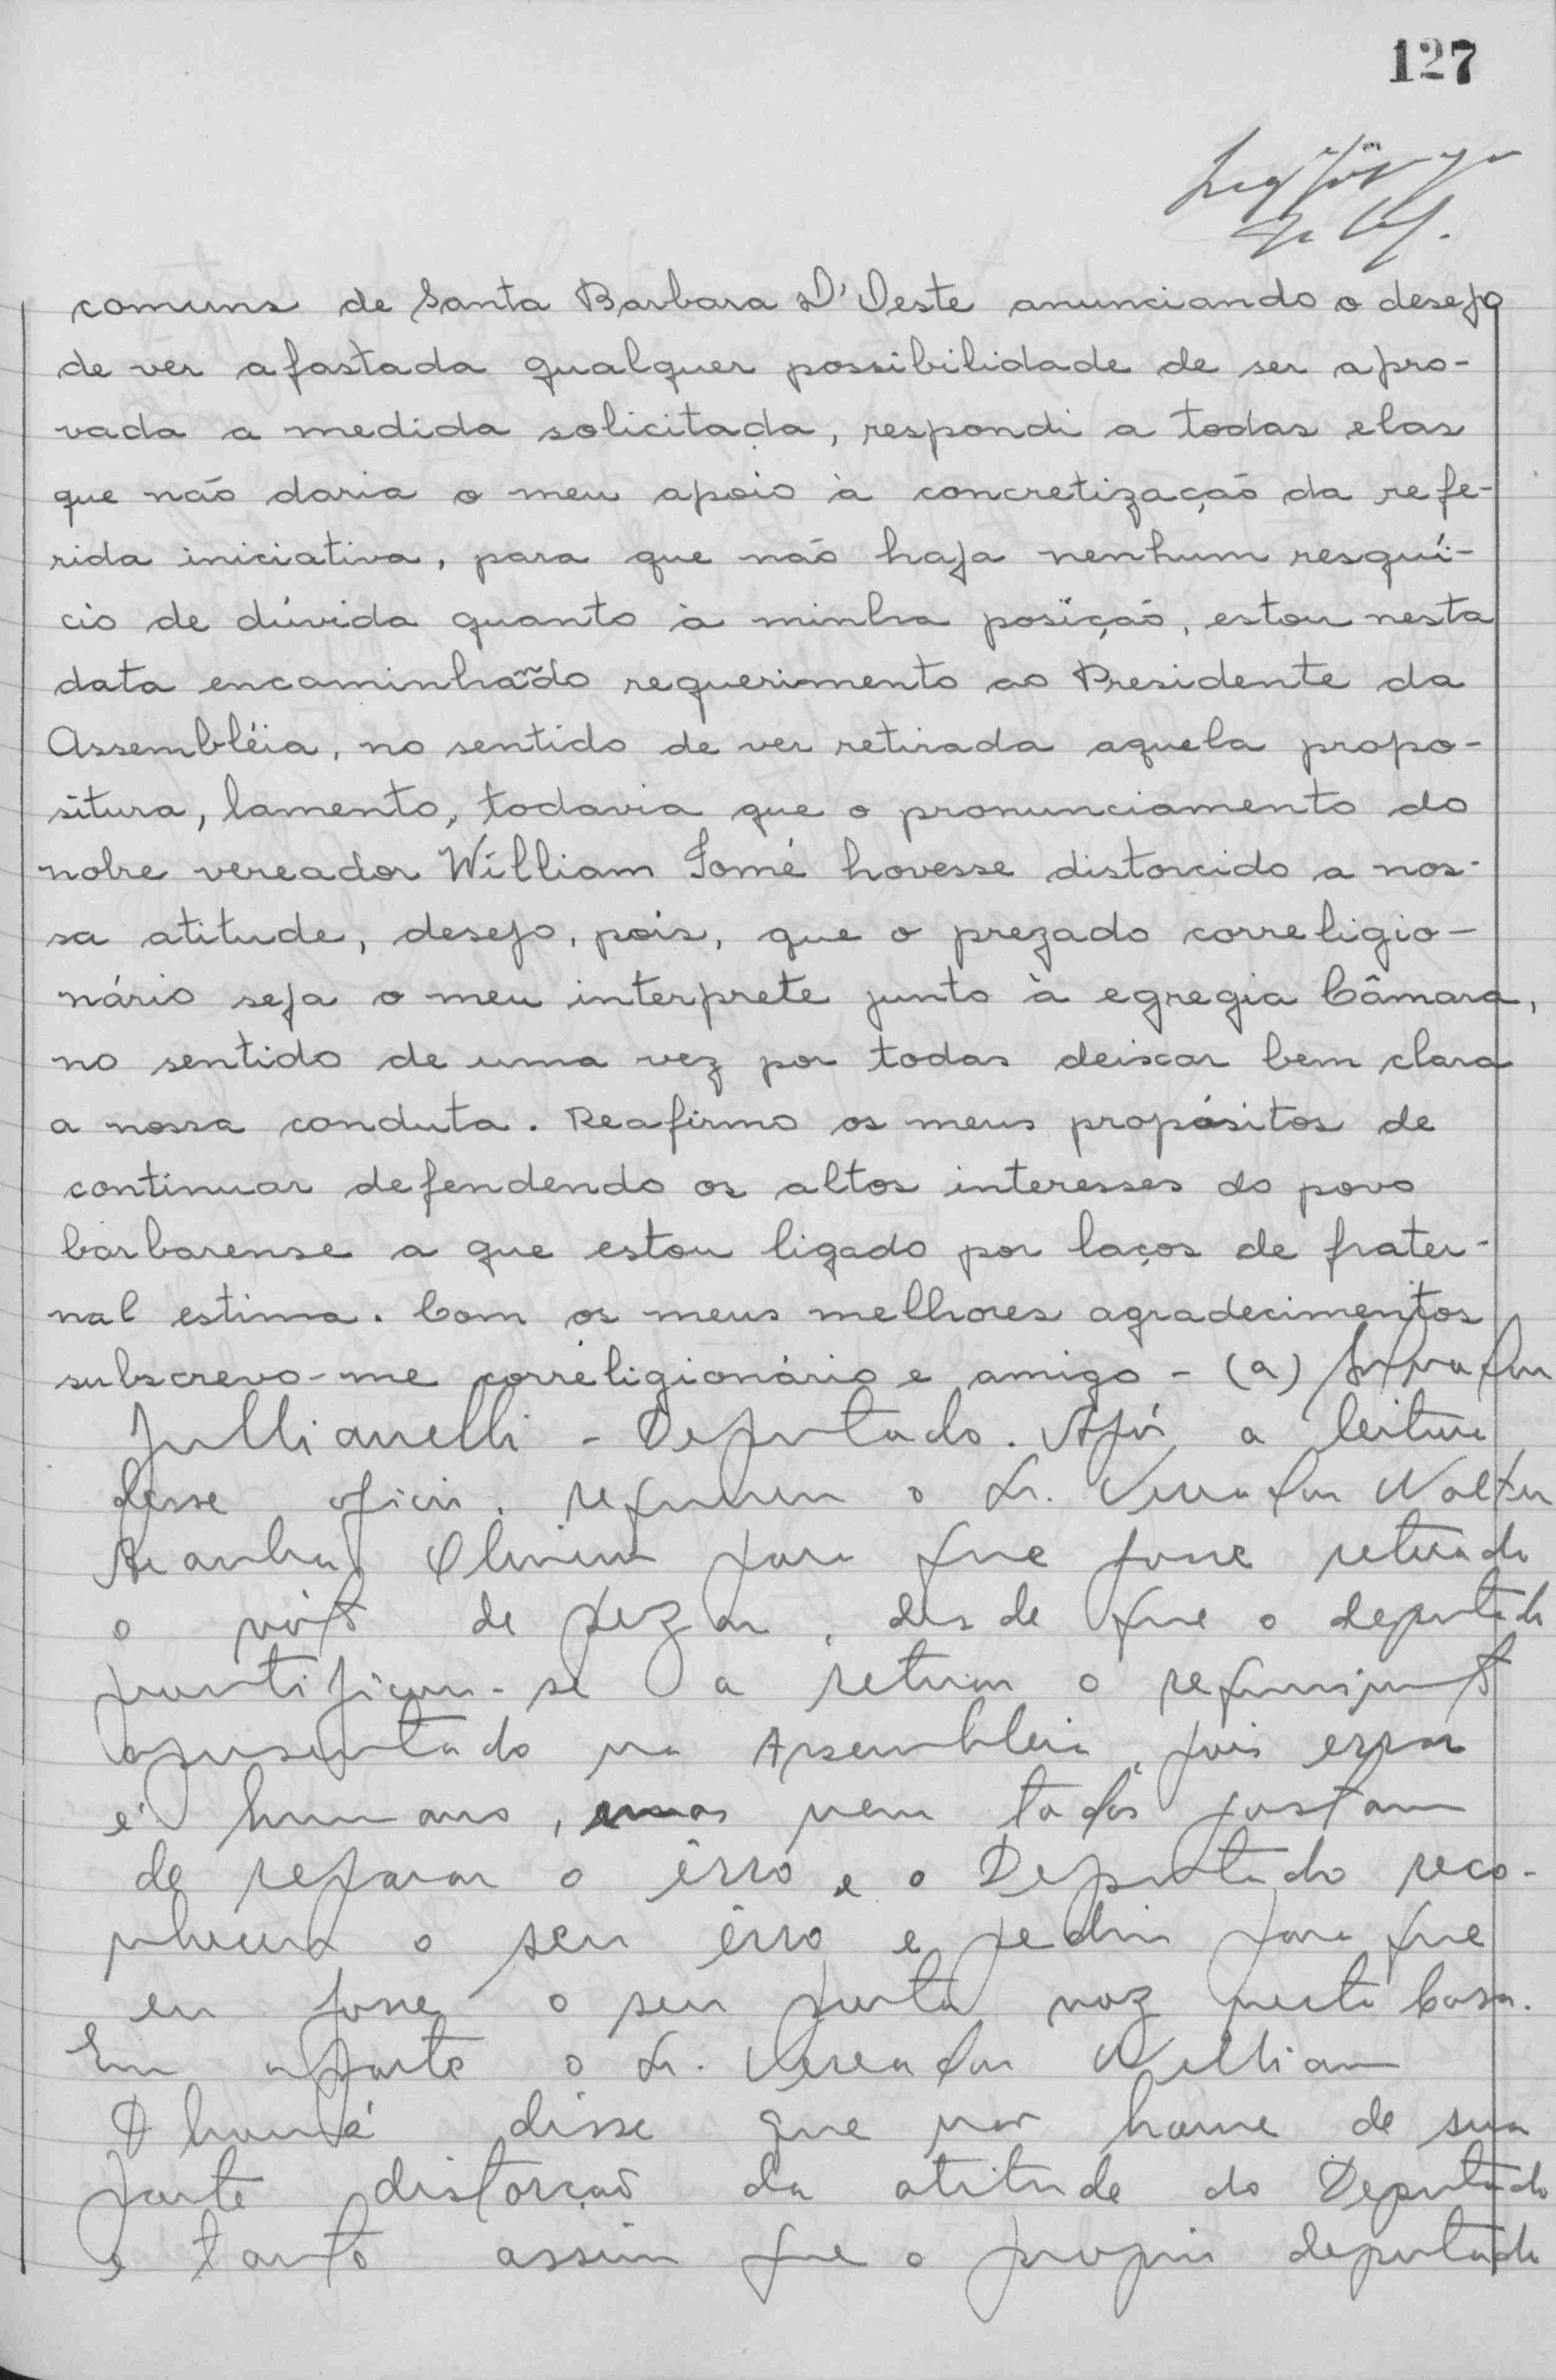 127
comuns de Santa Barbara D'Oeste anunciando o desejo
de ver afastada qualquer possibilidade de ser apro-
vada a medida solicitada, respondi a todas elas
que não daria o meu apoio à concretização da refe-
rida iniciativa, para que não haja nenhum resquí-
cio de dúvida quanto à minha posição, estou nesta
data encaminhando requerimento ao Presidente da
Assembléia, no sentido de ver retirada aquela propo-
situra, lamento, todavia que o pronunciamento do
nobre vereador William Tomé hovesse distorcido a nos-
sa atitude, desejo, pois, que o prezado correligio-
nário seja o meu interprete junto à egregia Câmara,
no sentido de uma vez por todas deixar bem clara
a nossa conduta. Reafirmo os meus propósitos de
continuar defendendo os altos interesses do povo
barbarense a que estou ligado por laços de frater-
nal estima. Com os meus melhores agradecimentos
subscrevo-me correligionário e amigo - (a)
Jullianelli - Deputado. Após a leitura
desse oficio, requereu o Sr. Vereador Walter
Aranha Oliveira para que fosse retirado
o vóto de pezar, desde que o deputado
prontificou-se a retirar o requerimento
apresentado na Assembleia, pois errar
é humano, mas nem todos gostam
de reparar o êrro e o Deputado reco-
nheceu o seu êrro e pediu para que
eu fosse o seu porta voz nesta Casa.
Em aparte o Sr. Vereador William
Thomé disse que não houve de sua
parte distorção da atitude do Deputado
e tanto assim que o proprio deputado